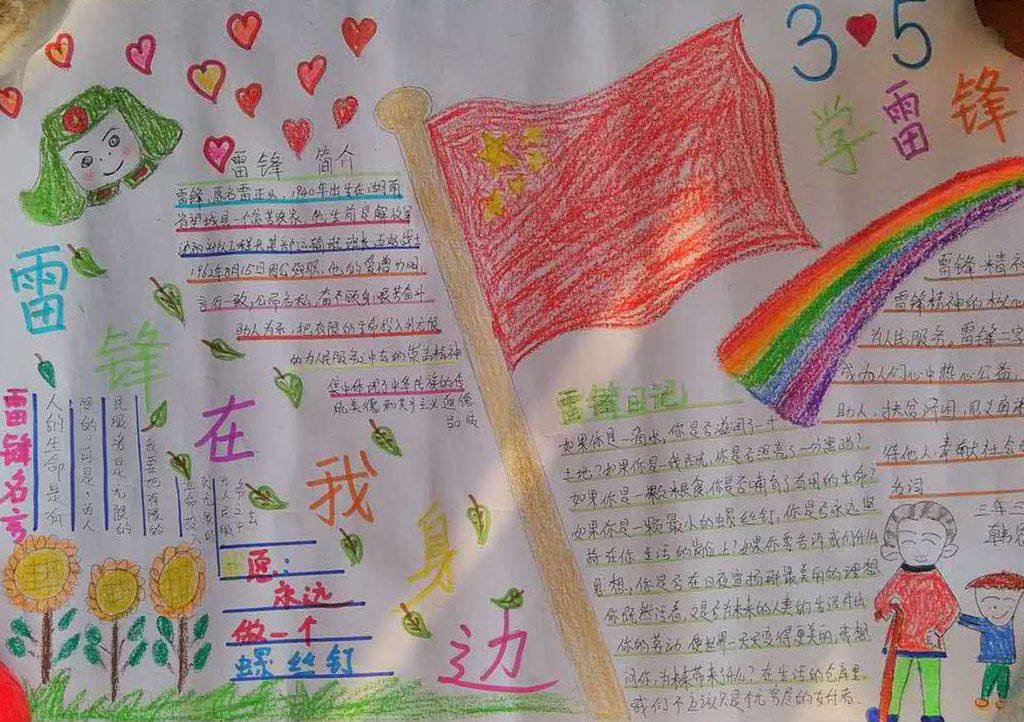 3 5
学雷锋
雷锋在我身边
雷锋简介
雷锋,原名雷正兴,1940年出生在湖南
省望城县一个贫苦农家,他生前是解放军
1962年8月15日因公殉职,他的爱憎分明,
言行一致,公而忘私,奋不顾身,艰苦奋斗
助人为乐,把有限的生命投入到无限
的为人民服务之中去的崇高精神
集中体现了中华民族的传
统美德和共产主义道德
品质
雷锋名言
人的生命是有
限的,可是,为人
民服务是无限的
我要把有限的
生命投入
到无限的
为人民服
务之中
去
愿:
永远
做一个
螺丝钉
雷锋日记
如果你是一滴水,你是否滋润了一寸
土地?如果你是一线阳光,你是否照亮了一分黑暗?
如果你是一颗粮食,你是否哺育了有用的生命?
如果你是一颗最小的螺丝钉,你是否永远坚
守在你生活的岗位上?如果你要告诉我们什么
思想,你是否在日夜宣扬那最美丽的理想
你既然活着,又是否为未来的人类的生活付出
你的劳动,使世界一天天变得更美丽,我想
问你,为未来带来了什么?在生活的仓库里,
我们不应该只是个无穷尽的支付者.
雷锋精神
雷锋精神的核心
为人民服务,雷锋一字
成为人们心中热心公益,
助人,扶贫济困,见义
三年三
韩